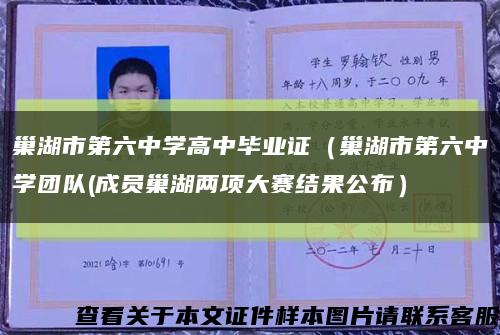 学生 罗翰钦 性别 男
年龄十八周岁，于二〇〇九年
入本校普通高中学习，学业期
巢湖市第六中学高中毕业证（巢湖市第六中
学团队(成员巢湖两项大赛结果公布）
二〇一二年 七月二十日
2012(哈)字 第101691号
查看关于本文证件样本图片请联系客服